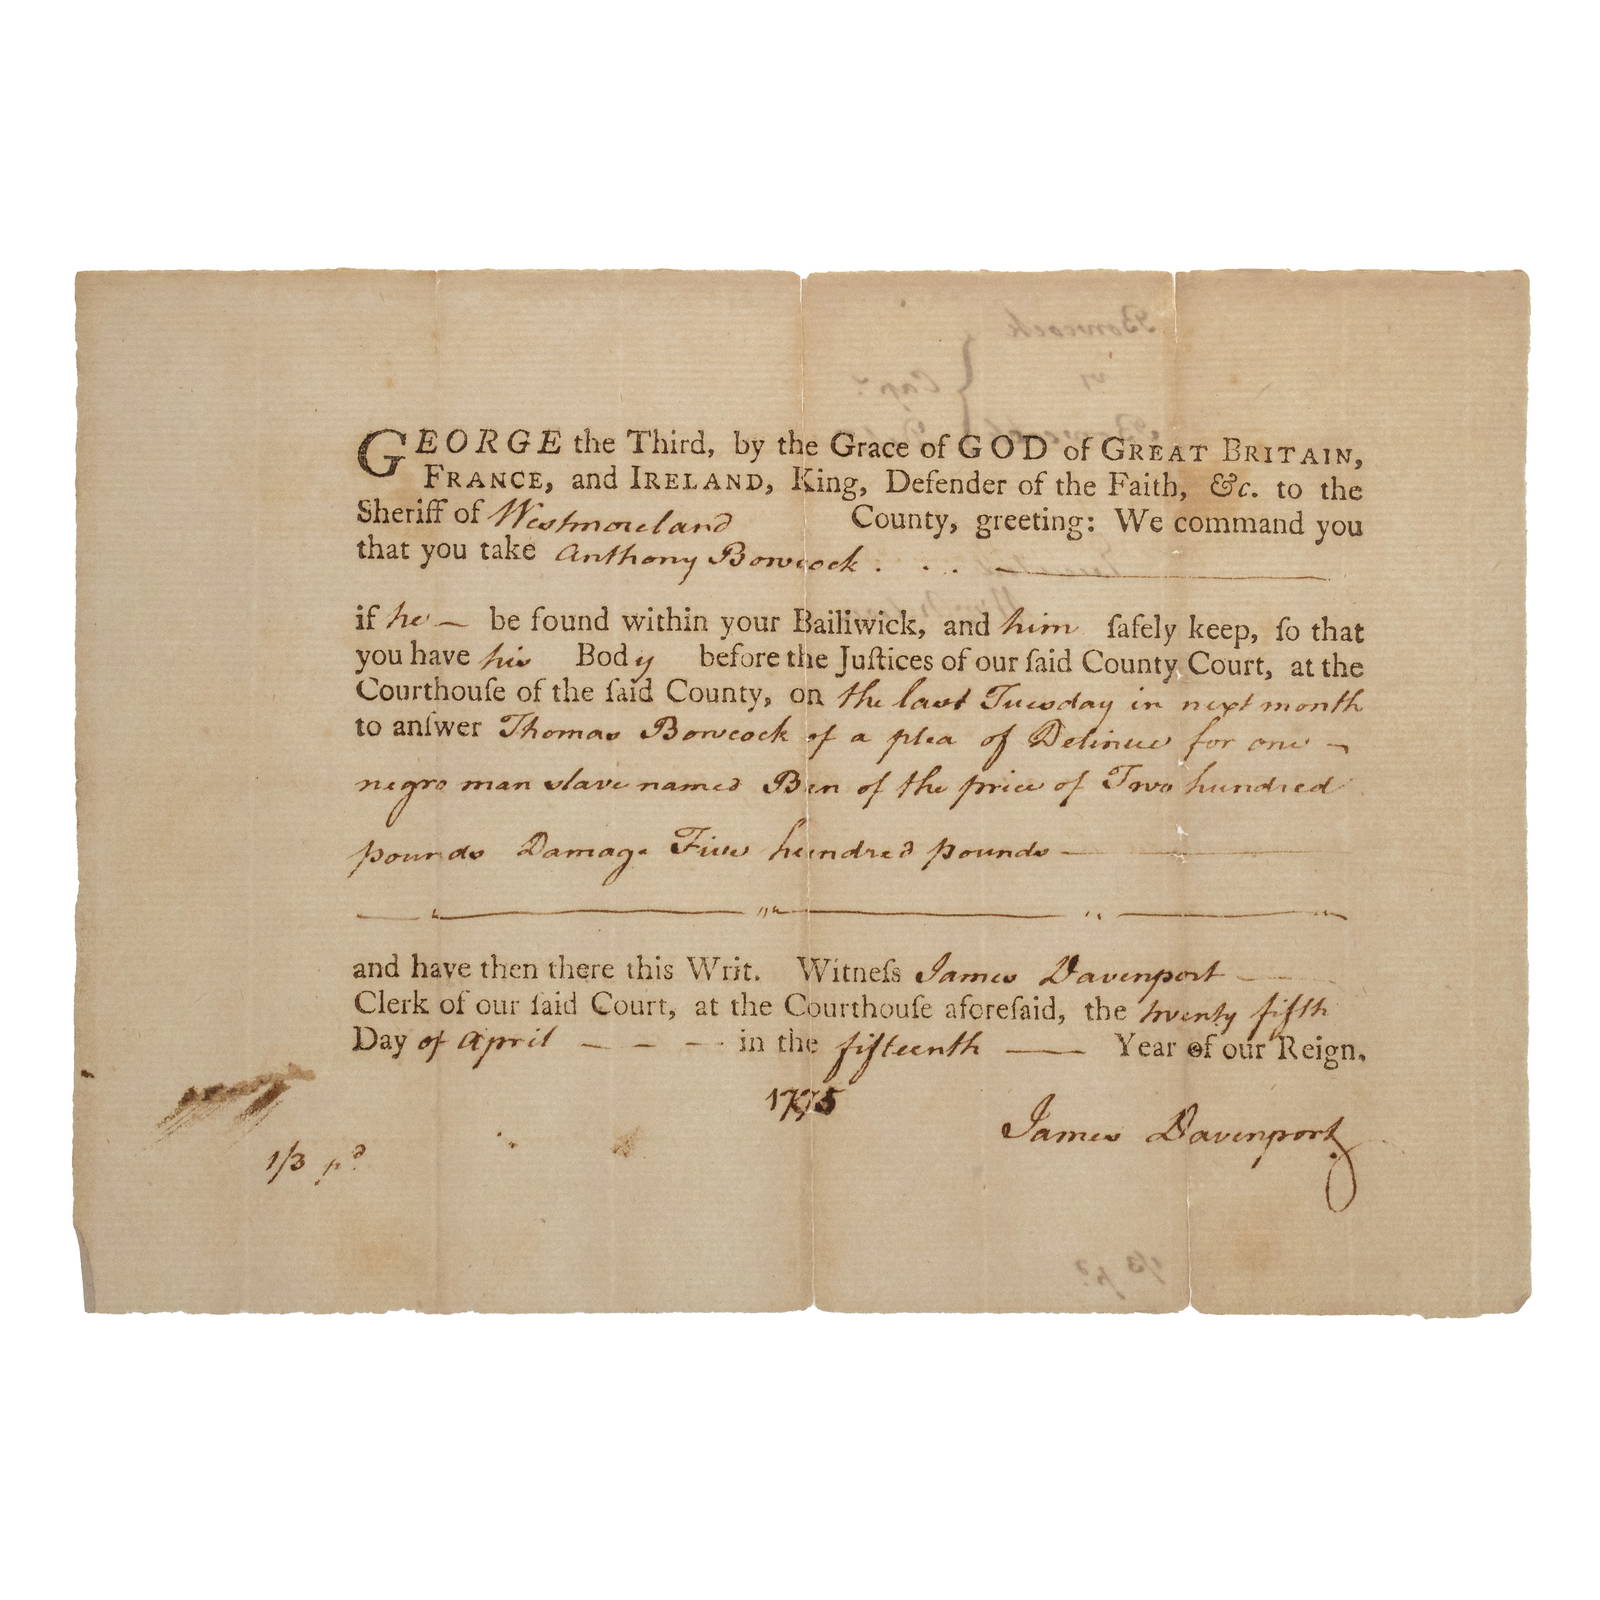 GEORGE the Third, by the Grace of GOD of GREAT BRITAIN,
FRANCE, and IRELAND, King, Defender of the Faith, &c. to the
Sheriff of Westmoreland County, greeting: We command you
that you take Anthony Bowcock . . .
if he — be found within your Bailiwick, and him ſafely keep, ſo that
you have his Body before the Juſtices of our ſaid County Court, at the
Courthouſe of the ſaid County, on the last Tuesday in next month
to anſwer Thomas Bowcock of a plea of Detinue for one —
negro man slave named Ben of the price of Two hundred
pounds Damage Five hundred pounds —
and have then there this Writ. Witneſs James Davenport —
Clerk of our ſaid Court, at the Courthouſe aforeſaid, the twenty fifth
Day of April — — — in the fifteenth — Year of our Reign.
1775
James Davenport
1/3 pd